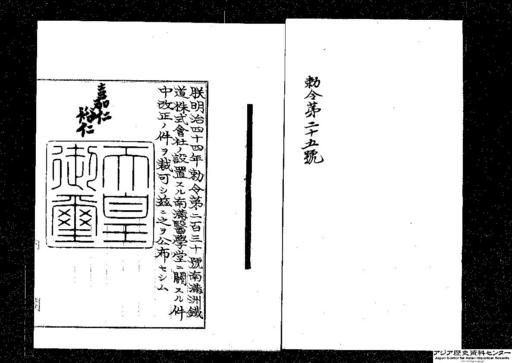 勅令第二十五號
朕明治四十四年勅令第二百三十號南滿洲鐵
道株式會社ノ設置スル南滿醫學堂ニ關スル件
中改正ノ件ヲ裁可シ玆ニ之ヲ公布セシム
嘉仁
裕仁
天皇
御璽
アジア歴史資料センター
Japan Center for Asian Historical Records